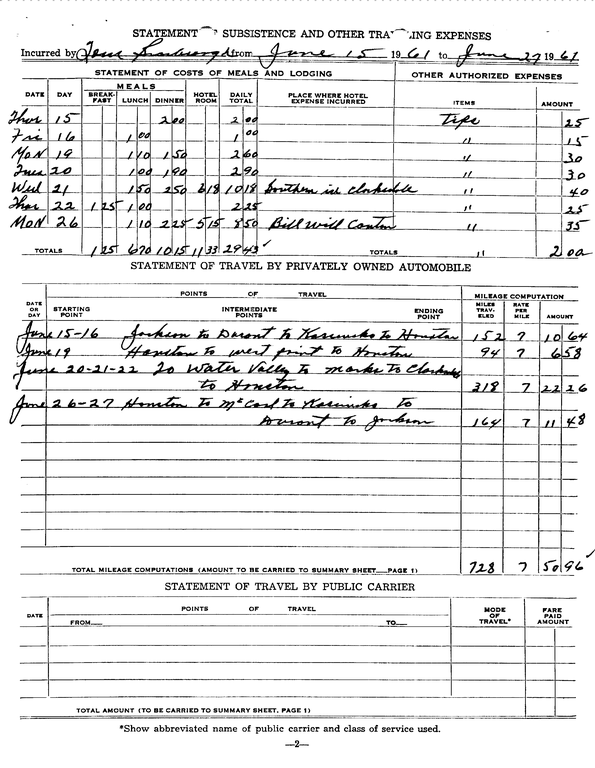 STATEMENT OF SUBSISTENCE AND OTHER TRAVELING EXPENSES
Incurred by from June 15 1961 to June 27 1961
STATEMENT OF COSTS OF MEALS AND LODGING OTHER AUTHORIZED EXPENSES
MEALS
DATE DAY BREAK-FAST LUNCH DINNER HOTEL ROOM DAILY TOTAL PLACE WHERE HOTEL EXPENSE INCURRED ITEMS AMOUNT
Thur 15 2 00 2 00 Tips 25
Fri 16 1 00 1 00 " 15
MON 19 1 10 1 50 2 60 " 30
Tues 20 1 00 1 90 2 90 " 30
Wed 21 1 50 2 50 6 18 10 18 Southern inn Clarksdale " 40
Thur 22 1 25 1 00 2 25 " 25
MON 26 1 10 2 25 5 15 8 50 Bill Will Canton " 35
TOTALS 1 25 6 70 10 15 11 33 29 43 TOTALS " 2 00
STATEMENT OF TRAVEL BY PRIVATELY OWNED AUTOMOBILE
POINTS OF TRAVEL MILEAGE COMPUTATION
DATE OR DAY STARTING POINT INTERMEDIATE POINTS ENDING POINT MILES TRAV-ELED RATE PER MILE AMOUNT
June 15-16 Jackson to Durant to Kosciusko to Houston 152 7 10 64
June 19 Houston to west point to Houston 94 7 6 58
June 20-21-22 to Water Valley to marks to Clarksdale
to Houston 318 7 22 26
June 26-27 Houston to McCool to Kosciusko to
Durant to Jackson 164 7 11 48
TOTAL MILEAGE COMPUTATIONS (AMOUNT TO BE CARRIED TO SUMMARY SHEET PAGE 1) 728 7 50 96
STATEMENT OF TRAVEL BY PUBLIC CARRIER
DATE POINTS OF TRAVEL MODE OF TRAVEL* FARE PAID AMOUNT
FROM TO
TOTAL AMOUNT (TO BE CARRIED TO SUMMARY SHEET, PAGE 1)
*Show abbreviated name of public carrier and class of service used.
—2—